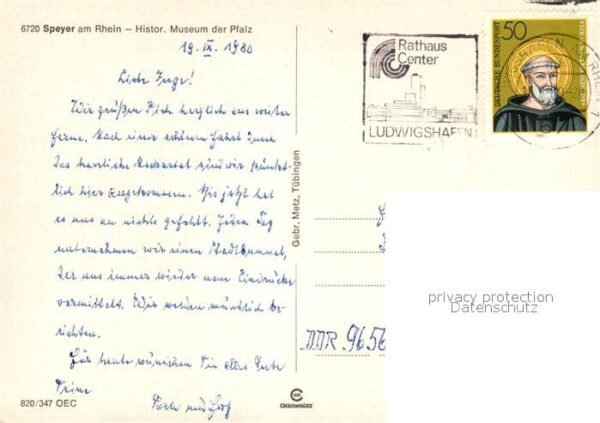 6720 Speyer am Rhein – Histor. Museum der Pfalz
19. IX. 1980
Liebe Inge!
Wir grüßen Dich herzlich aus weiter
Ferne. Nach einer schönen Fahrt durch
das herrliche Neckartal sind wir pünkt-
lich hier angekommen. Bis jetzt hat
es uns an nichts gefehlt. Jeden Tag
unternehmen wir einen Stadtbummel,
der uns immer wieder neue Eindrücke
vermittelt. Wir werden mündlich be-
richten.
Für heute wünschen Dir alles Gute
Deine
und
820/347 OEC
Gebr. Metz, Tübingen
Rathaus
Center
LUDWIGSHAFEN
50
DEUTSCHE BUNDESPOST
DDR 9656
privacy protection
Datenschutz